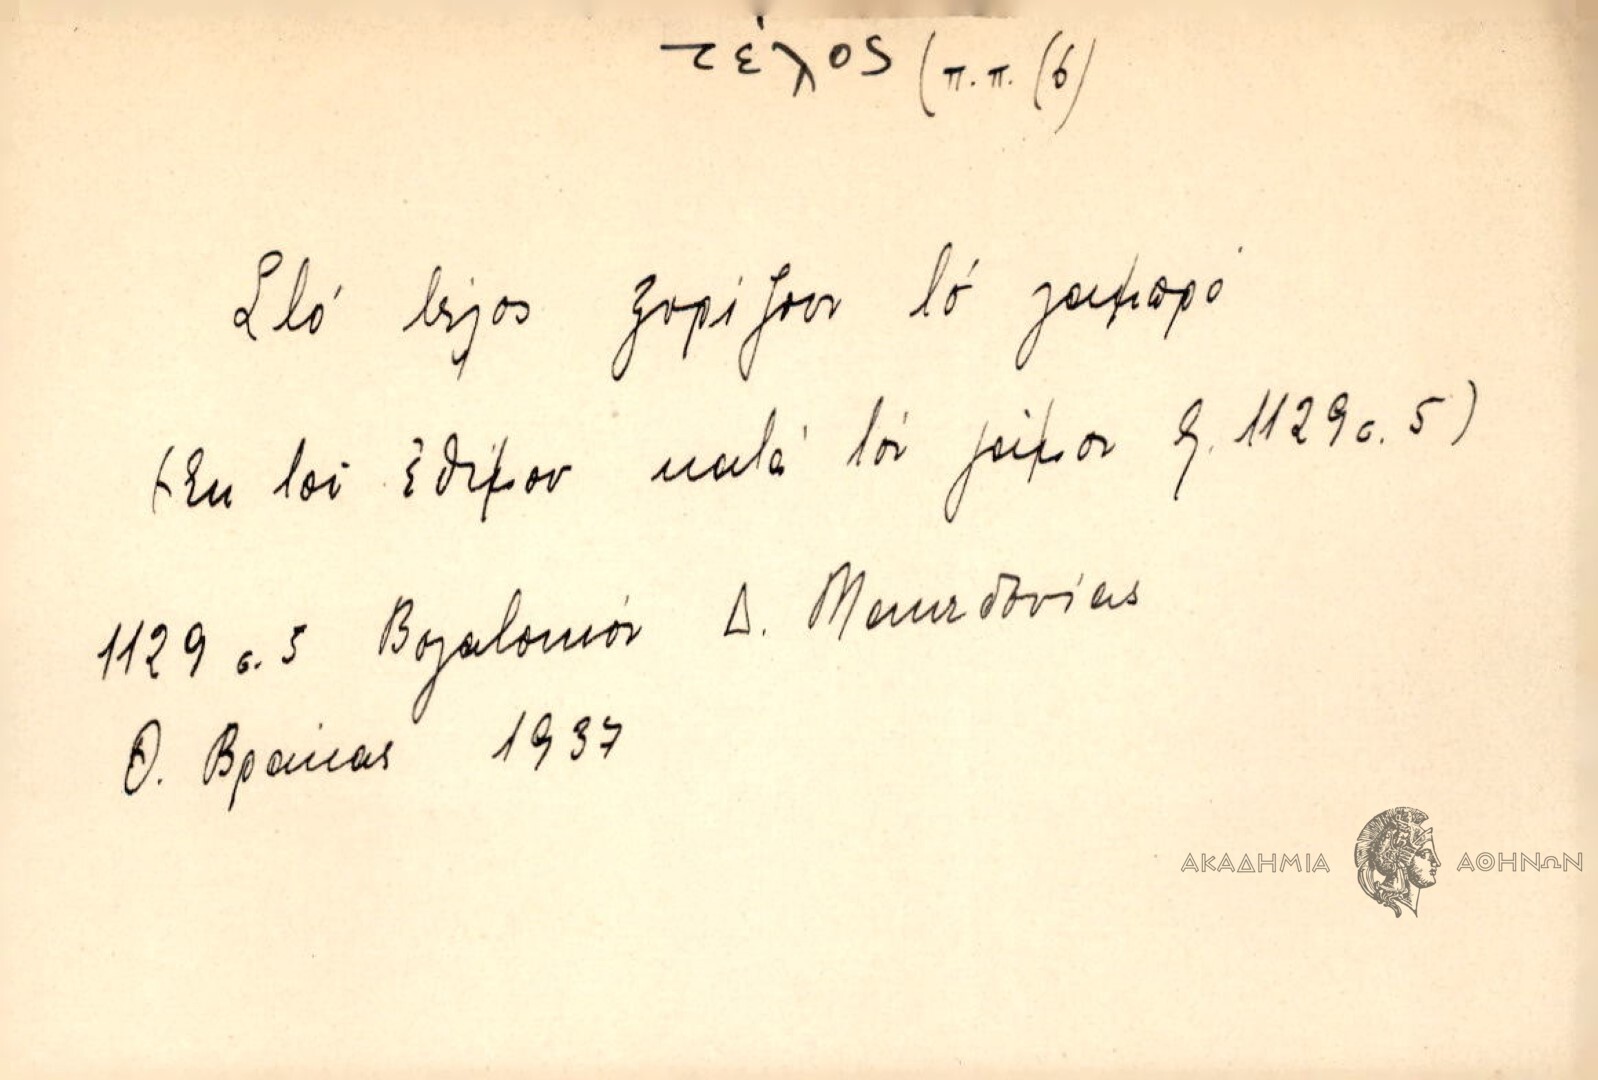 τέλος (π.π. (6)
Στό τέλος ξυρίζουν τό γαμπρό
(Ἐκ τοῦ ἐθίμου κατά τόν γάμον Λ. 1129 σ. 5)
1129 σ. 5 Βογατσικόν Δ. Μακεδονίας
Θ. Βράκας 1937
ΑΚΑΔΗΜΙΑ ΑΘΗΝΩΝ